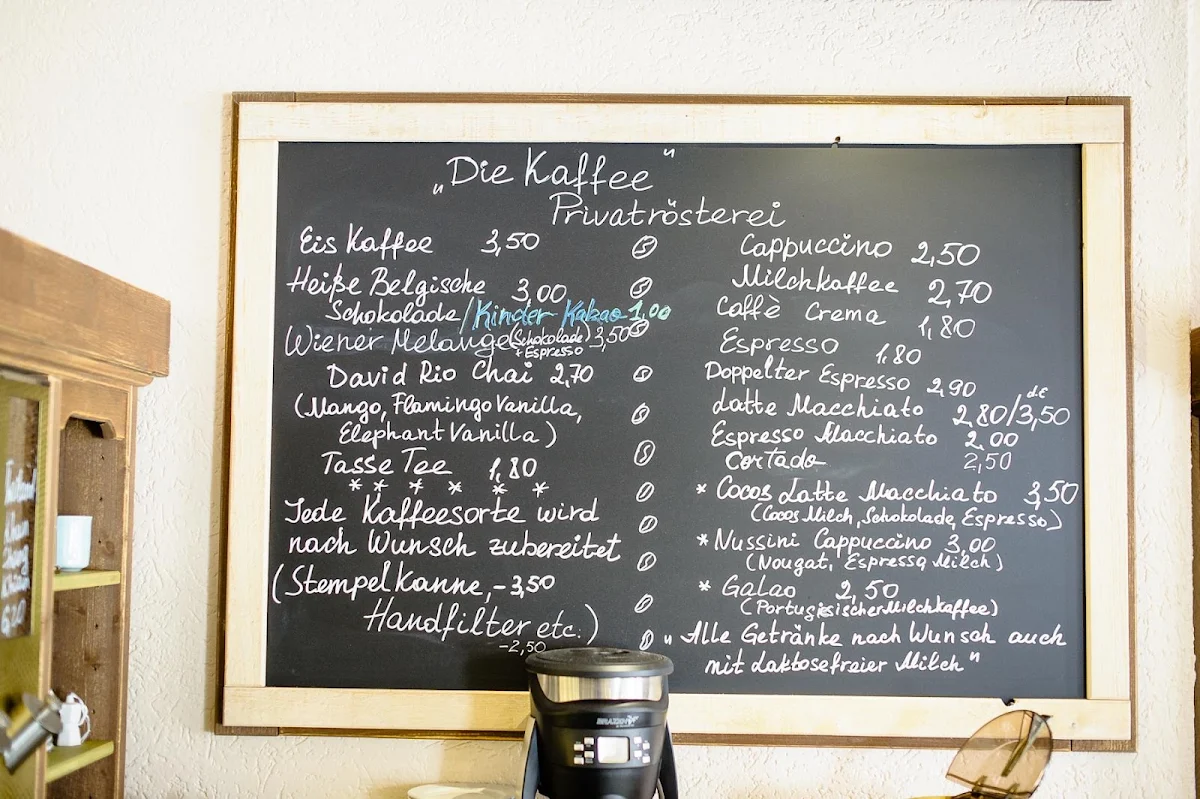 „Die Kaffee“
Privatrösterei
Eis Kaffee 3,50
Heiße Belgische 3,00
Schokolade/Kinder Kakao 1,00
Wiener Melange (Schokolade + Espresso) 3,50
David Rio Chai 2,70
(Mango, Flamingo Vanilla,
Elephant Vanilla)
Tasse Tee 1,80
* * * * * *
Jede Kaffeesorte wird
nach Wunsch zubereitet
(Stempelkanne, -3,50
Handfilter etc.)
-2,50
Cappuccino 2,50
Milchkaffee 2,70
Caffè Crema 1,80
Espresso 1,80
Doppelter Espresso 2,90
Latte Macchiato 2,80/3,50
Espresso Macchiato 2,00
Cortado 2,50
* Cocos Latte Macchiato 3,50
(Cocos Milch, Schokolade, Espresso)
* Nussini Cappuccino 3,00
(Nougat, Espresso, Milch)
* Galao 2,50
(Portugisischer Milchkaffee)
„Alle Getränke nach Wunsch auch
mit Laktosefreier Milch"